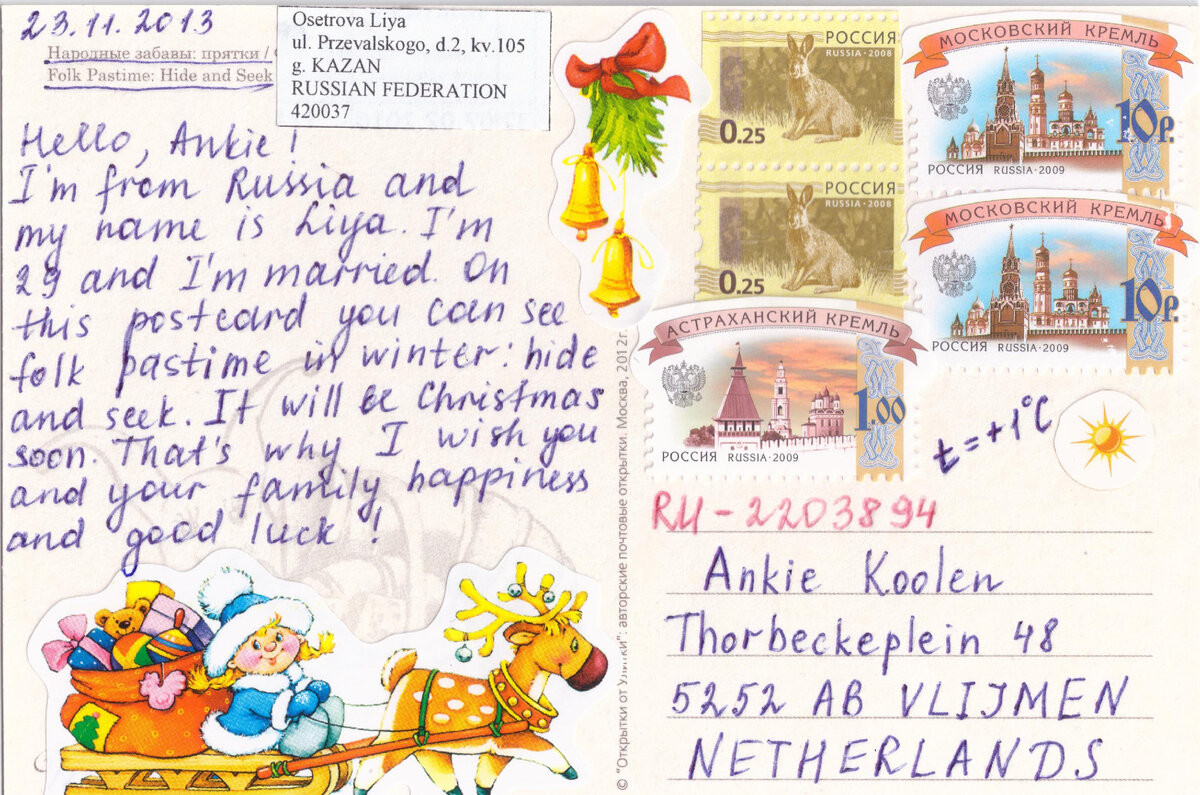 23.11.2013
Народные забавы: прятки /
Folk Pastime: Hide and Seek
Osetrova Liya
ul. Przevalskogo, d.2, kv.105
g. KAZAN
RUSSIAN FEDERATION
420037
Hello, Ankie!
I'm from Russia and
my name is Liya. I'm
29 and I'm married. On
this postcard you can see
folk pastime in winter: hide
and seek. It will be Christmas
soon. That's why I wish you
and your family happiness
and good luck!
РОССИЯ
RUSSIA·2008
0.25
РОССИЯ
RUSSIA·2008
0.25
МОСКОВСКИЙ КРЕМЛЬ
10р.
РОССИЯ RUSSIA·2009
МОСКОВСКИЙ КРЕМЛЬ
10р.
РОССИЯ RUSSIA·2009
АСТРАХАНСКИЙ КРЕМЛЬ
1.00
РОССИЯ RUSSIA·2009
t=+1°C
© "Открытки от Улитки": авторские почтовые открытки. Москва, 2012г.
RU-2203894
Ankie Koolen
Thorbeckeplein 48
5252 AB VLIJMEN
NETHERLANDS